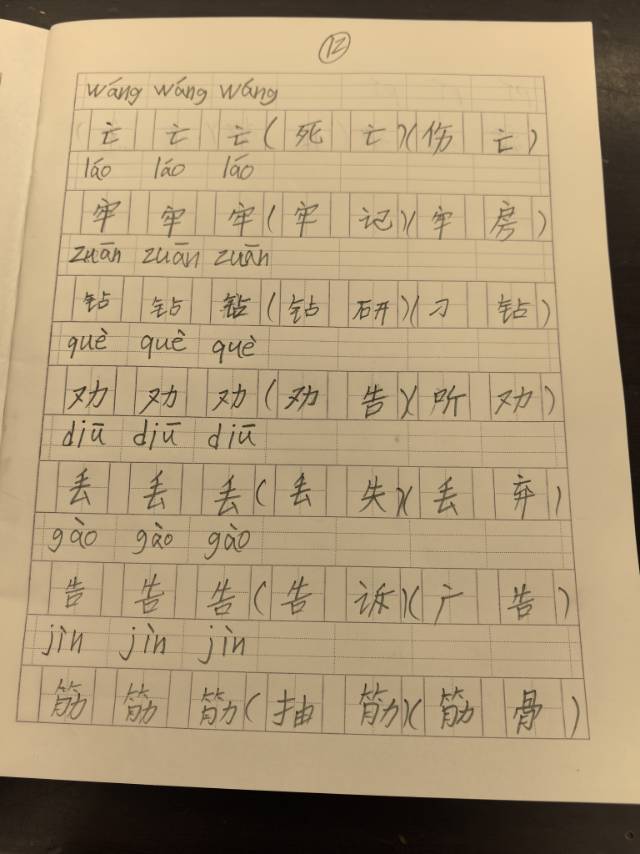 12
wáng wáng wáng
亡 亡 亡(死 亡)(伤 亡)
láo láo láo
牢 牢 牢(牢 记)(牢 房)
zuān zuān zuān
钻 钻 钻(钻 研)(刁 钻)
què què què
劝 劝 劝(劝 告)(所 劝)
diū diū diū
丢 丢 丢(丢 失)(丢 弃)
gào gào gào
告 告 告(告 诉)(广 告)
jìn jìn jìn
筋 筋 筋(抽 筋)(筋 骨)